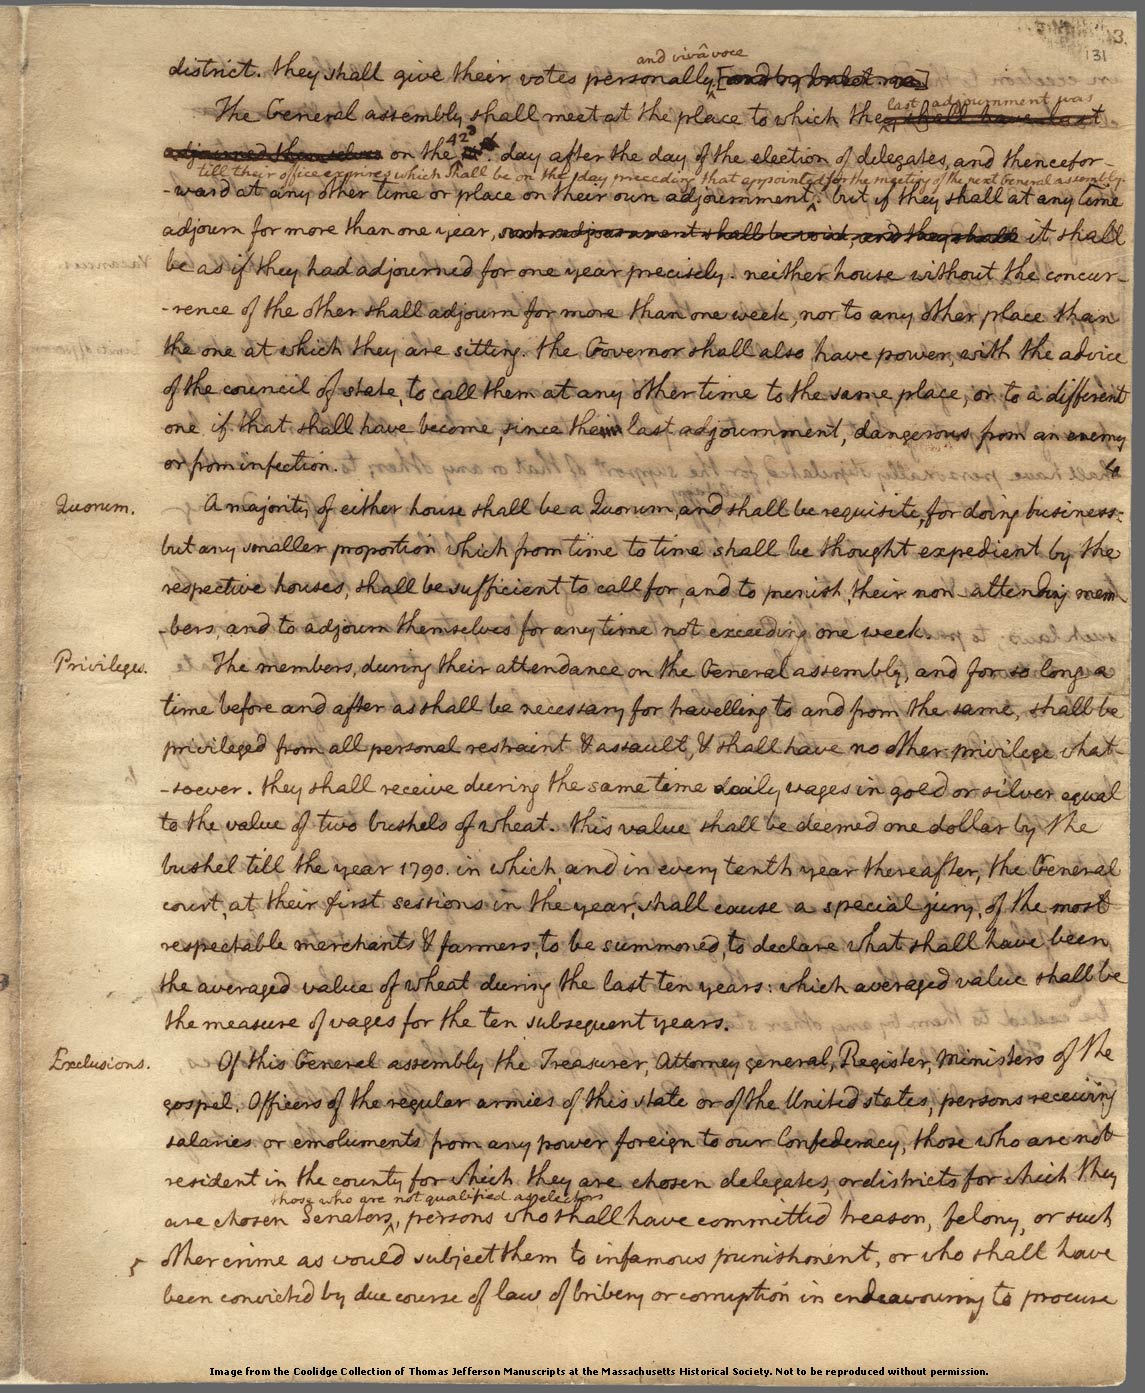 3.
131
and vivâ voce
district. they shall give their votes personally, [and by ballot. viva]
last adjournment was
The General assembly shall meet at the place to which they shall have last
42d
adjourned themselves on the day after the day of the election of delegates, and thencefor-
till their office expires which shall be on the day preceding that appointed for the meeting of the next General assembly.
-ward at any other time or place on their own adjournment. but if they shall at any time
adjourn for more than one year, such adjournment shall be void, and they shall it shall
be as if they had adjourned for one year precisely. neither house without the concur-
-rence of the other shall adjourn for more than one week, nor to any other place than
the one at which they are sitting. the Governor shall also have power, with the advice
of the council of state, to call them at any other time to the same place, or to a different
one if that shall have become, since the last adjournment, dangerous from an enemy
or from infection.
Quorum. A majority of either house shall be a Quorum, and shall be requisite, for doing business:
but any smaller proportion which from time to time shall be thought expedient by the
respective houses, shall be sufficient to call for, and to punish, their non-attending mem-
-bers, and to adjourn themselves for any time not exceeding one week.
Privileges. The members, during their attendance on the General assembly, and for so long a
time before and after as shall be necessary for travelling to and from the same, shall be
privileged from all personal restraint & assault, & shall have no other privilege what-
-soever. they shall receive during the same time daily wages in gold or silver equal
to the value of two bushels of wheat. this value shall be deemed one dollar by the
bushel till the year 1790. in which, and in every tenth year thereafter, the General
court, at their first sessions in the year, shall cause a special jury, of the most
respectable merchants & farmers, to be summoned, to declare what shall have been
the averaged value of wheat during the last ten years: which averaged value shall be
the measure of wages for the ten subsequent years.
Exclusions. Of this General assembly the Treasurer, Attorney general, Register, ministers of the
gospel, Officers of the regular armies of this state or of the United states, persons receiving
salaries or emoluments from any power foreign to our Confederacy, those who are not
resident in the county for which they are chosen delegates, or districts for which they
those who are not qualified as electors
are chosen Senators, persons who shall have committed treason, felony, or such
other crime as would subject them to infamous punishment, or who shall have
been convicted by due course of law of bribery or corruption in endeavouring to procure
Image from the Coolidge Collection of Thomas Jefferson Manuscripts at the Massachusetts Historical Society. Not to be reproduced without permission.